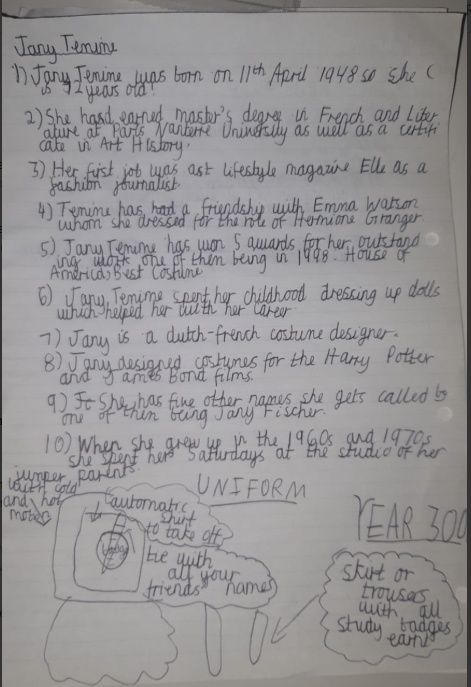 Jany Temine
1) Jany Temine was born on 11th April 1948 so she (
is 72 years old!
2) She hasd earned master's degree in French and Liter
ature at Paris Nanterre University as well as a certifi
cate in Art History.
3) Her first job was ast lifestyle magazine Elle as a
fashion journalist.
4) Temine has had a friendship with Emma Watson
whom she dressed for the role of Hermione Granger.
5) Jany Temine has won 5 awards for her outstand
ing work one of them being in 1998. House of
America, Best Costume
6) Jany Temime spent her childhood dressing up dolls
which helped her with her career
7) Jany is a dutch-french costume designer.
8) Jany designed costumes for the Harry Potter
and James Bond films.
9) She has five other names she gets called by
one of them being Jany Fischer.
10) When she grew up in the 1960s and 1970s
she spent her Saturdays at the studio of her
parents.
UNIFORM
jumper
with gold
and hot
automatic
shirt
to take off
tie with
all your
friends names
YEAR 300
skirt or
trousers
with all
study badges
earnt